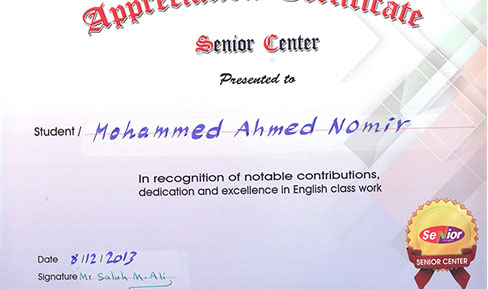 Appreciation Certificate
Senior Center
Presented to
Student / Mohammed Ahmed Nomir
In recognition of notable contributions,
dedication and excellence in English class work
Date 8/12/2013
Signature Mr Salah M. Ali
Senior
SENIOR CENTER